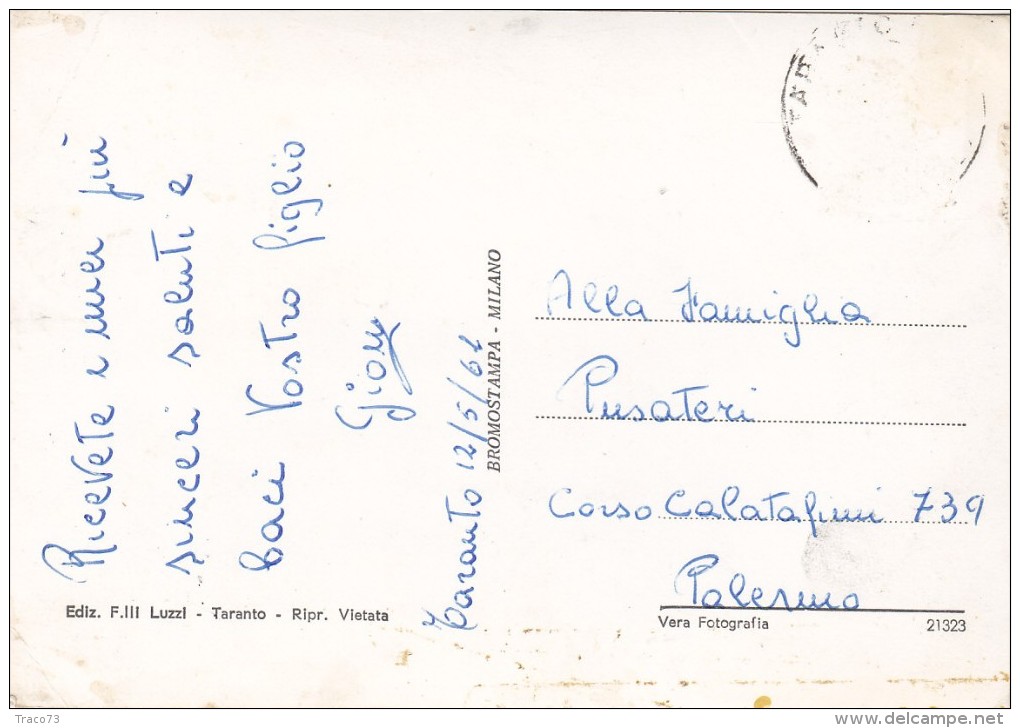 Ricevete i miei più
sinceri saluti e
baci Vostro figlio
Taranto 12/5/62
BROMOSTAMPA - MILANO
Alla Famiglia
Pusateri
Corso Calatafimi 739
Palermo
Ediz. F.lli Luzzi - Taranto - Ripr. Vietata
Vera Fotografia
21323
Traco73
www.delcampe.net